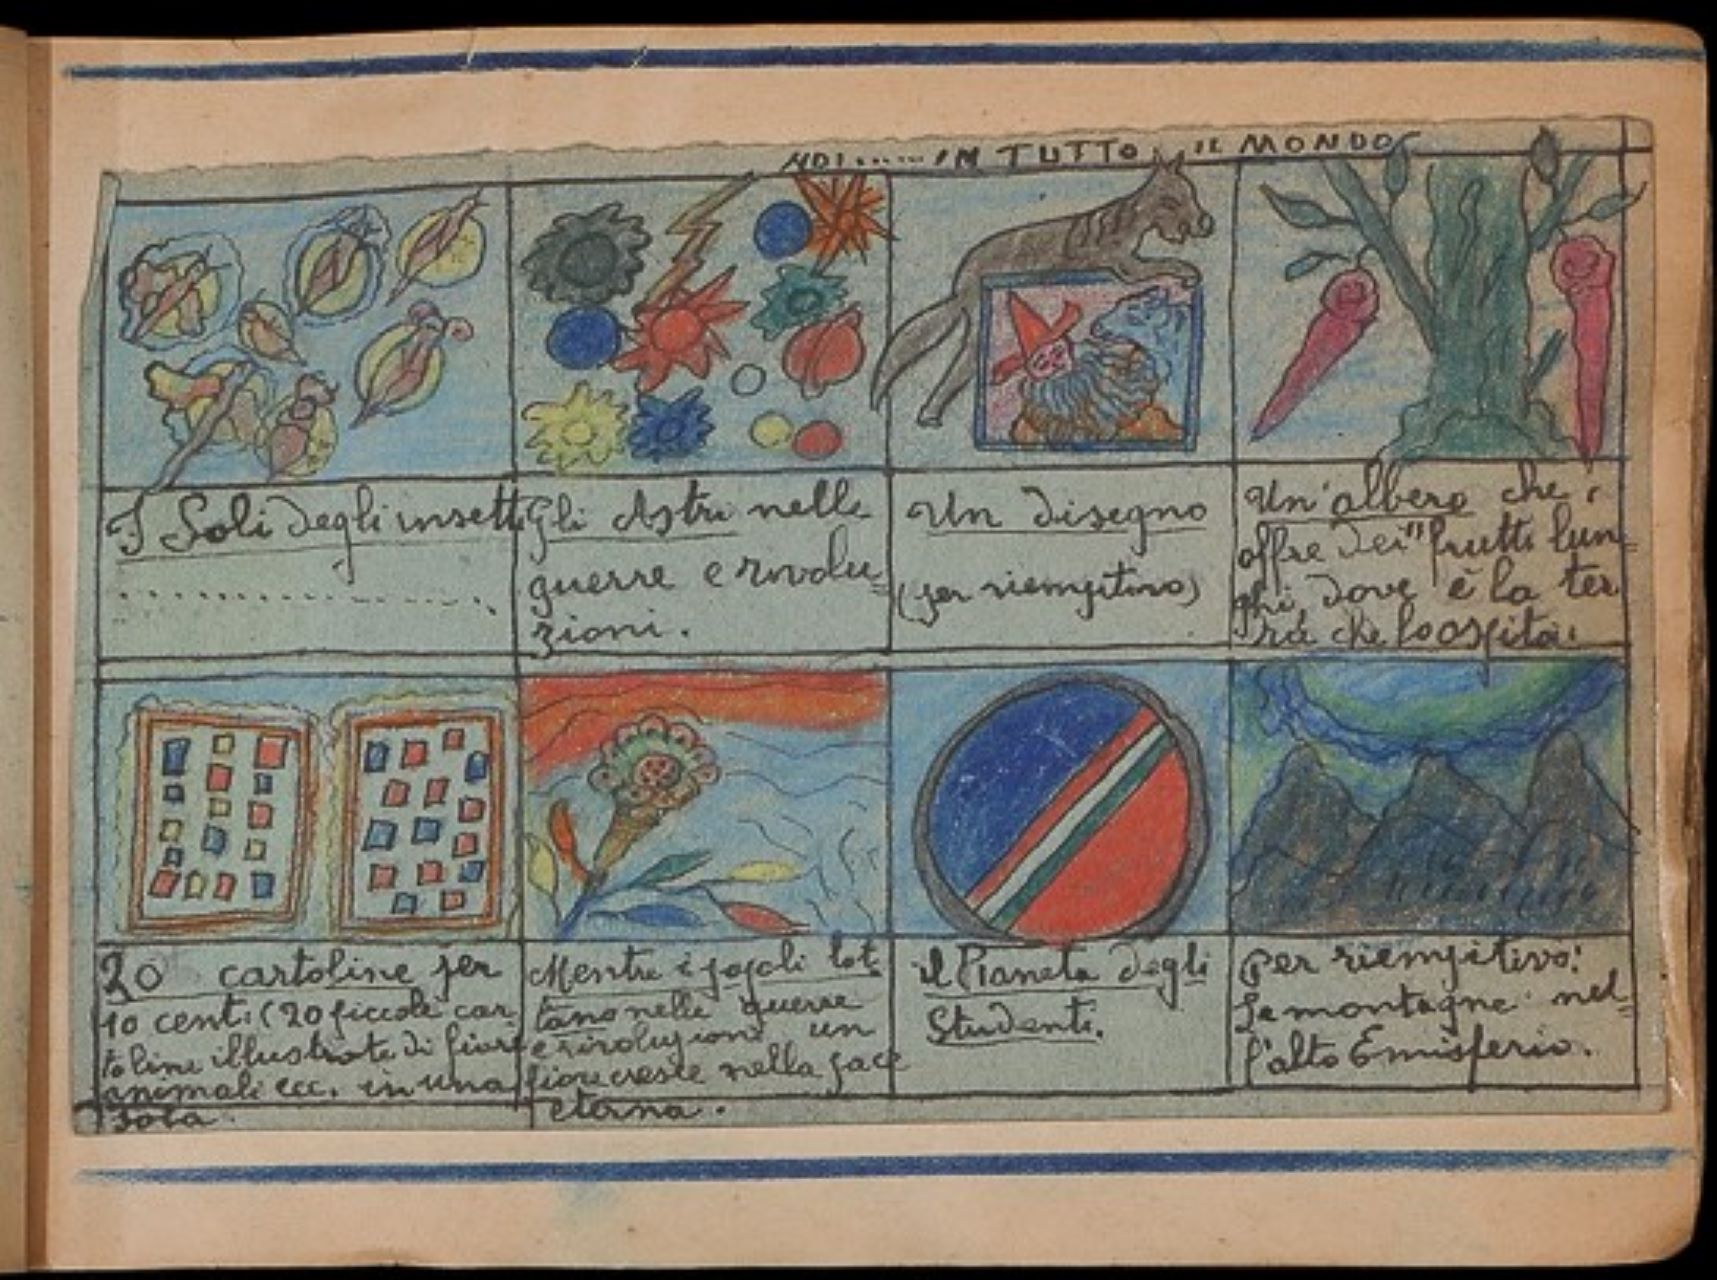 NOI...... IN TUTTO IL MONDO
I Soli degli insetti
....................
Gli Astri nelle
guerre e rivolu=
zioni.
Un disegno
(per riempitivo)
Un'albero che
offre dei "frutti lun=
ghi, dove è la ter
ra che lo ospita.
20 cartoline per
10 cent. (20 piccole car
toline illustrate di fiori
animali ecc. in una
sola.
Mentre i popoli lot
tano nelle guerre
e rivoluzioni un
fiore cresce nella pace
eterna.
il Pianeta degli
Studenti.
Per riempitivo:
Le montagne nel=
l'alto Emisferio.